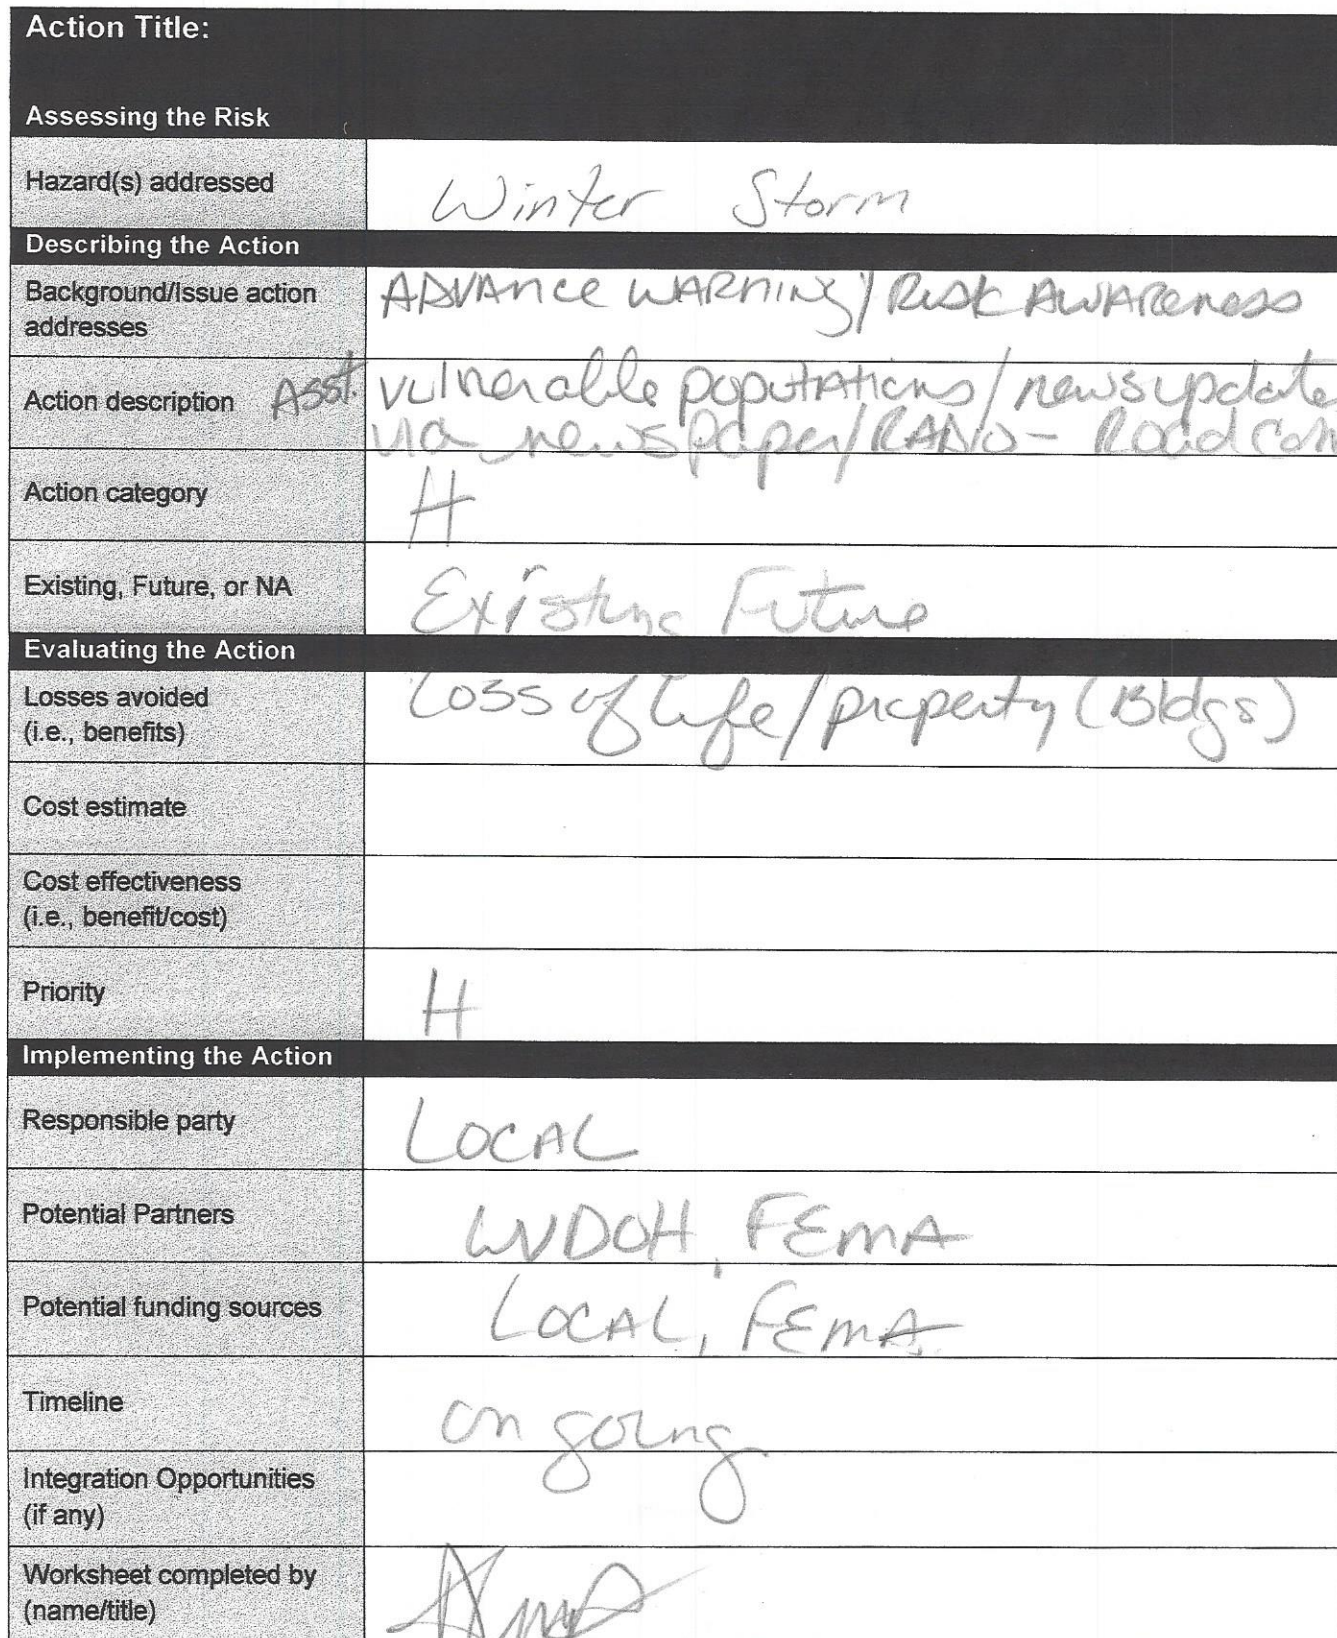 Action Title:
Assessing the Risk
Hazard(s) addressed
Winter Storm
Describing the Action
Background/Issue action
addresses
ADVAnce WARNING/RISK AWAReness
Action description
Asst. vulnerable populations/news update
via newspaper/RADIO - Road Con
Action category
H
Existing, Future, or NA
Existing Future
Evaluating the Action
Losses avoided
(i.e., benefits)
Loss of life/property (Bldgs)
Cost estimate
Cost effectiveness
(i.e., benefit/cost)
Priority
H
Implementing the Action
Responsible party
LOCAL
Potential Partners
WVDOH, FEMA
Potential funding sources
LOCAL, FEMA
Timeline
on going
Integration Opportunities
(if any)
Worksheet completed by
(name/title)